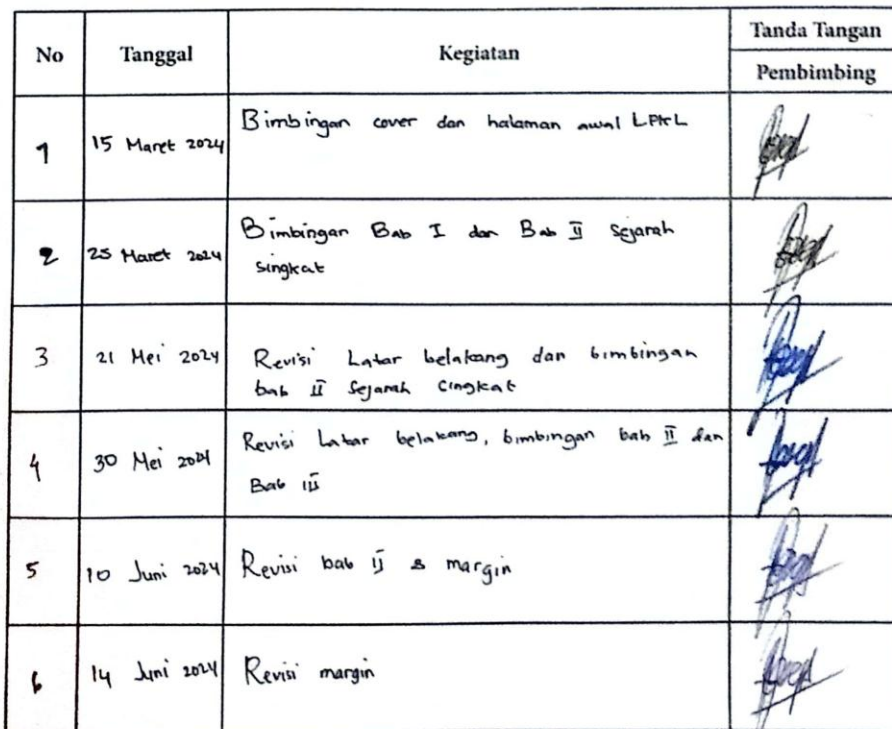 No Tanggal Kegiatan Tanda Tangan
Pembimbing
1 15 Maret 2024 Bimbingan cover dan halaman awal LPKL
2 25 Maret 2024 Bimbingan Bab I dan Bab II Sejarah
singkat
3 21 Mei 2024 Revisi Latar belakang dan bimbingan
bab II Sejarah singkat
4 30 Mei 2024 Revisi Latar belakang, bimbingan bab II dan
Bab III
5 10 Juni 2024 Revisi bab II & margin
6 14 Juni 2024 Revisi margin